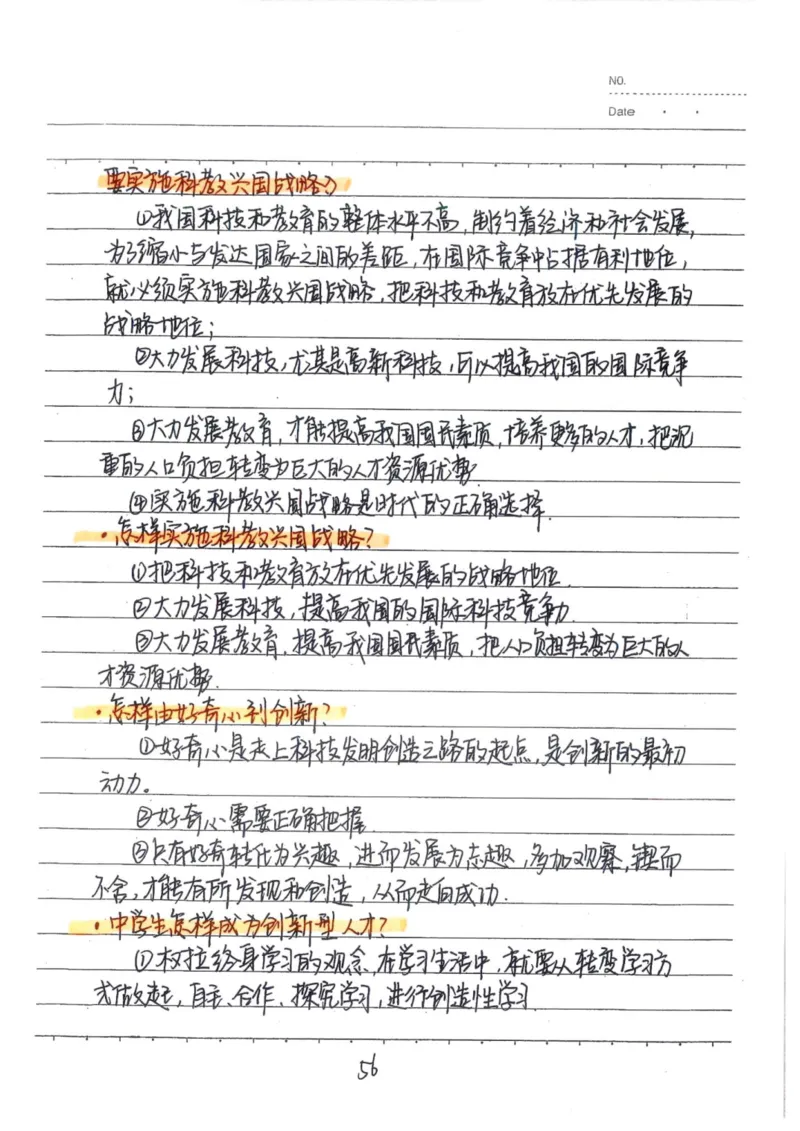 NO.
Date
要实施科教兴国战略?
①我国科技和教育的整体水平不高,制约着经济和社会发展,
为了缩小与发达国家之间的差距,在国际竞争中占据有利地位,
就必须实施科教兴国战略,把科技和教育放在优先发展的
战略地位;
②大力发展科技,尤其是高新科技,可以提高我国的国际竞争
力;
③大力发展教育,才能提高我国国民素质,培养更多的人才,把沉
重的人口负担转变为巨大的人才资源优势.
④实施科教兴国战略是时代的正确选择.
·怎样实施科教兴国战略?
①把科技和教育放在优先发展的战略地位.
②大力发展科技,提高我国的国际科技竞争力.
③大力发展教育,提高我国国民素质,把人口负担转变为巨大的人
才资源优势.
·怎样由好奇心到创新?
①好奇心是走上科技发明创造之路的起点,是创新的最初
动力。
②好奇心需要正确把握.
③只有好奇转化为兴趣,进而发展为志趣,多加观察,锲而
不舍,才能有所发现和创造,从而走向成功.
·中学生怎样成为创新型人才?
①权拉终身学习的观念,在学习生活中,就要从转变学习方
式做起,自主、合作、探究学习,进行创造性学习.
56